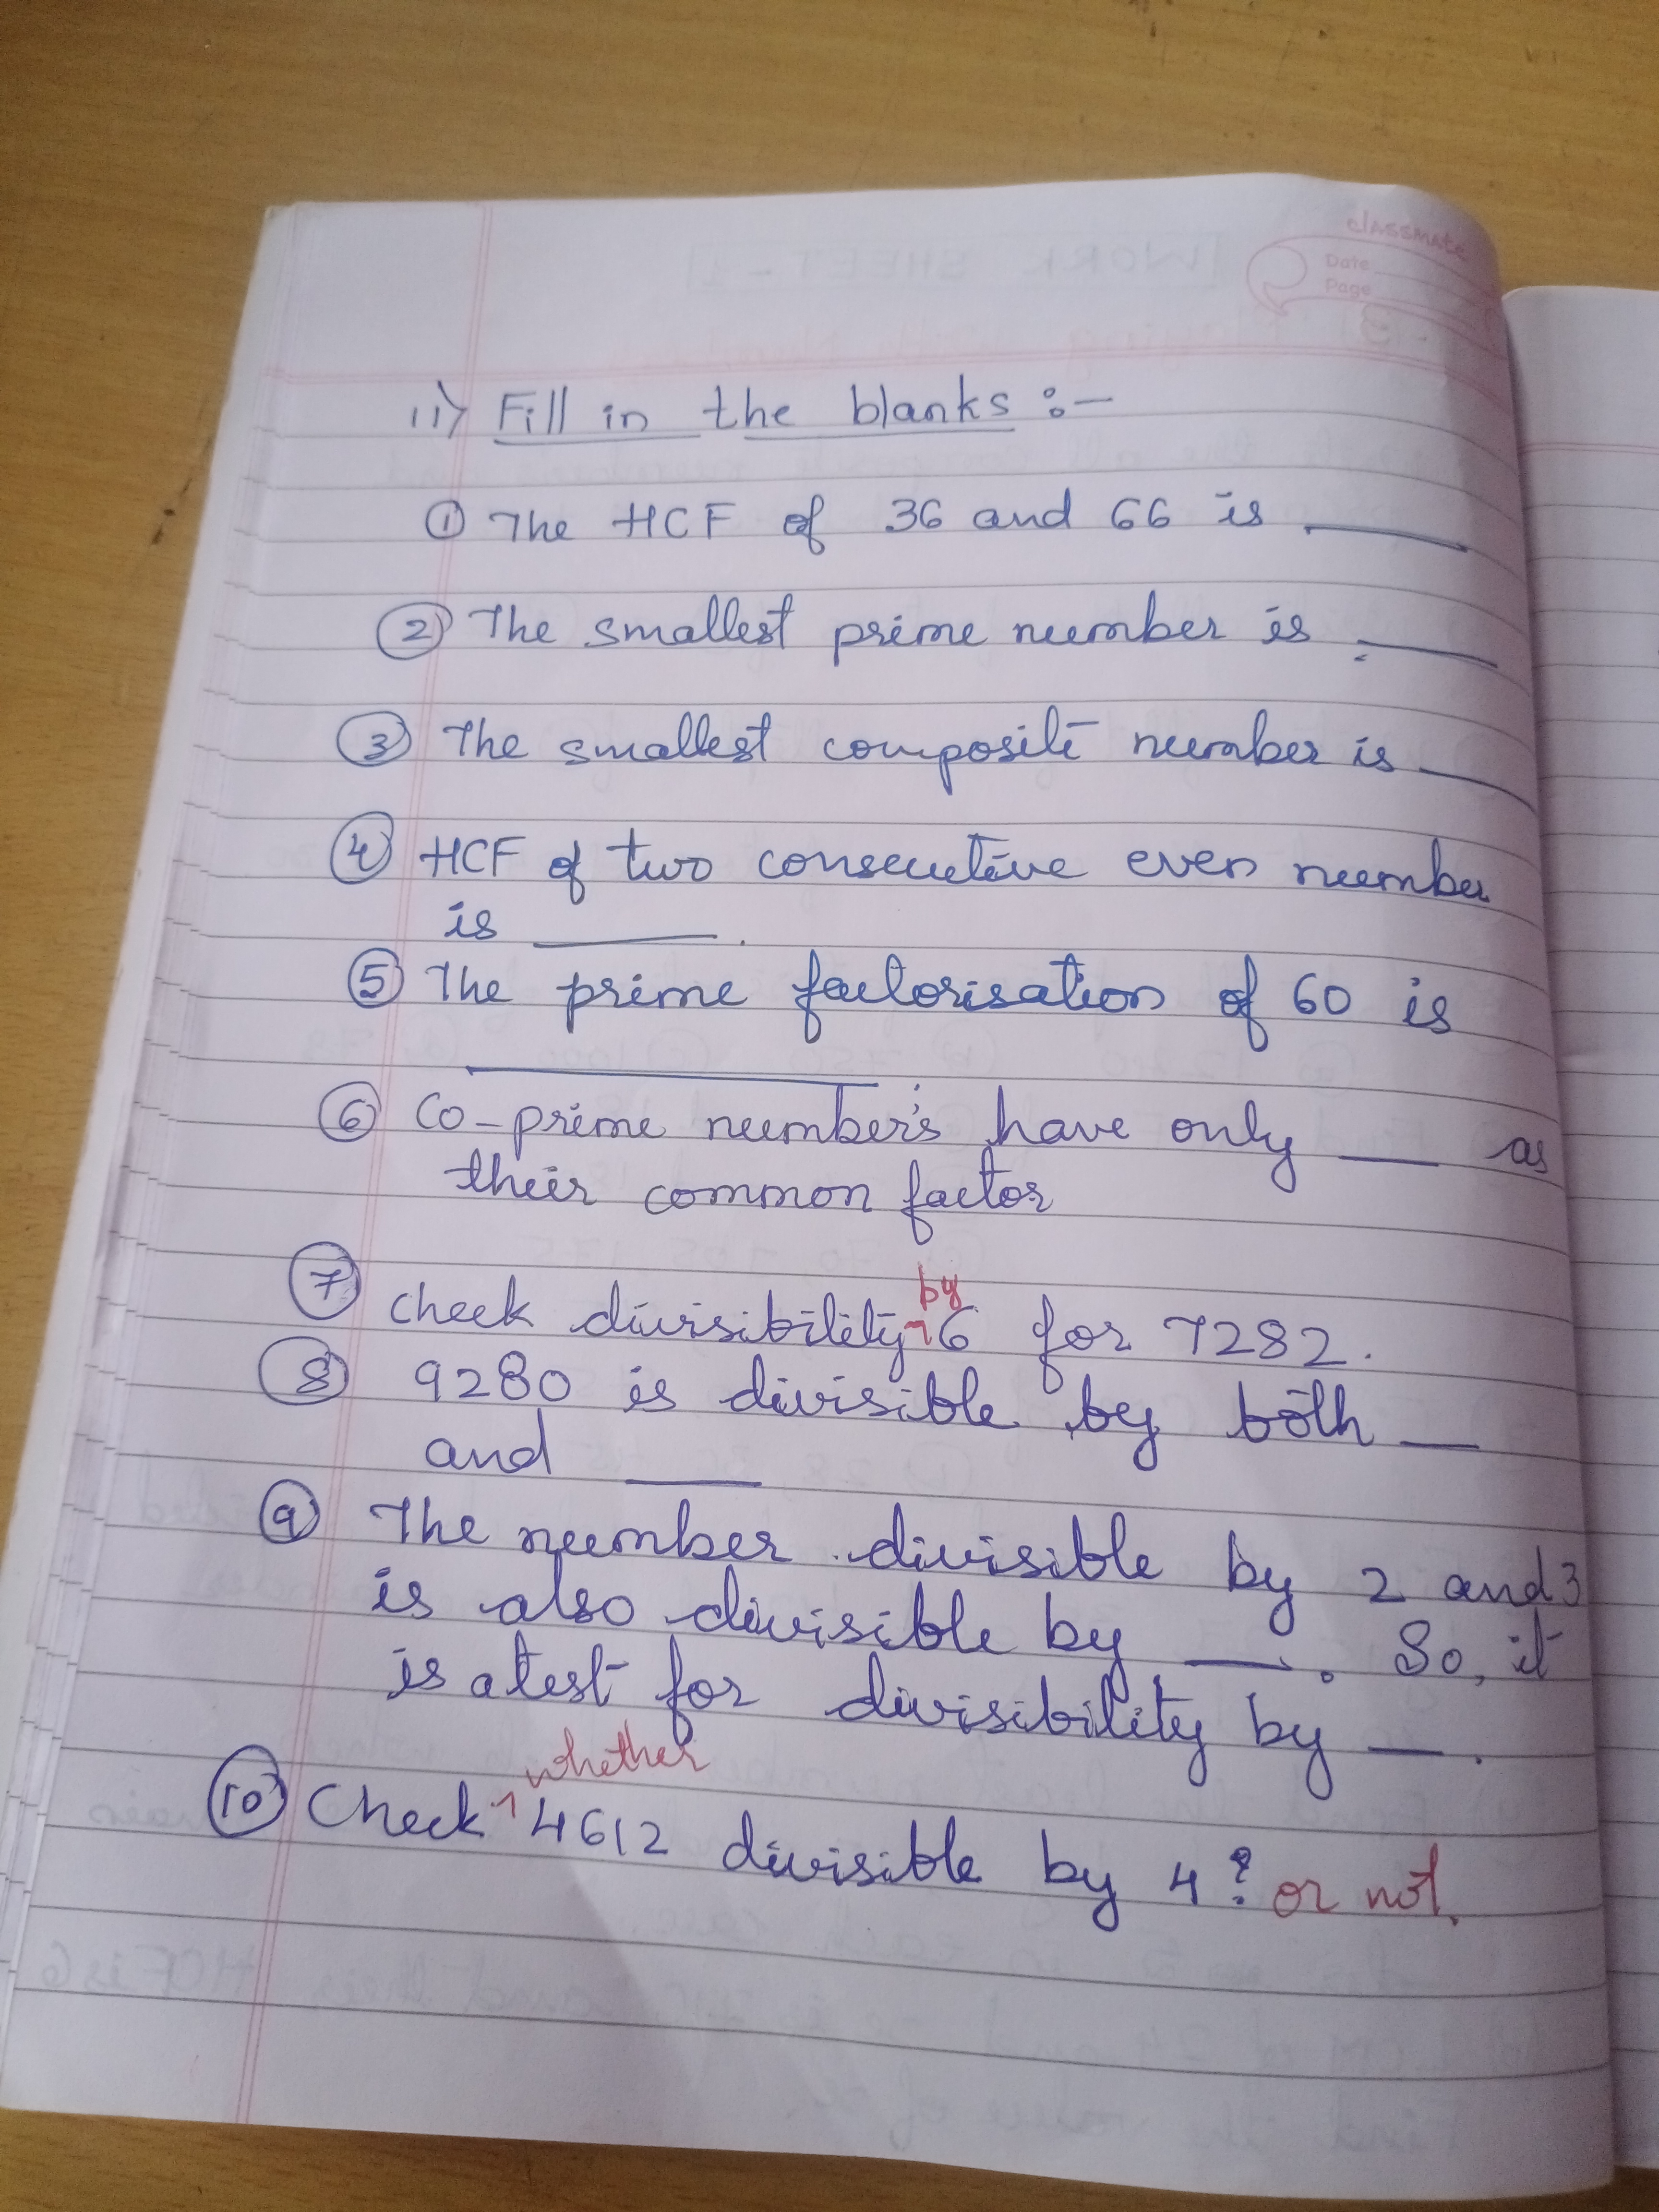 classmate
Date
Page
11) Fill in the blanks :-
① The HCF of 36 and 66 is ____
② The smallest prime number is ____
③ The smallest composite number is ____
④ HCF of two consecutive even number
is ____.
⑤ The prime factorisation of 60 is
____
⑥ Co-prime number's have only ____ as
their common factor
by
⑦ check divisibility 6 for 7282.
⑧ 9280 is divisible by both ____
and ____
⑨ The number divisible by 2 and 3
is also divisible by ____. So, it
is a test for divisibility by ____.
whether
⑩ Check 4612 divisible by 4? or not.